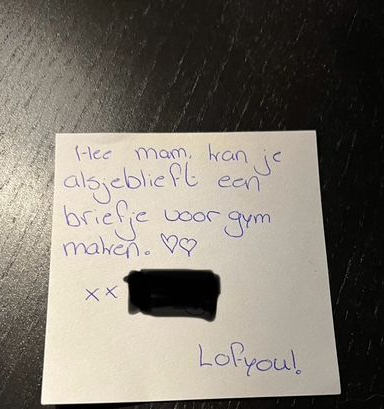 Hee mam, kan je
alsjeblieft een
briefje voor gym
maken. ♡♡
xx
Lofyou!